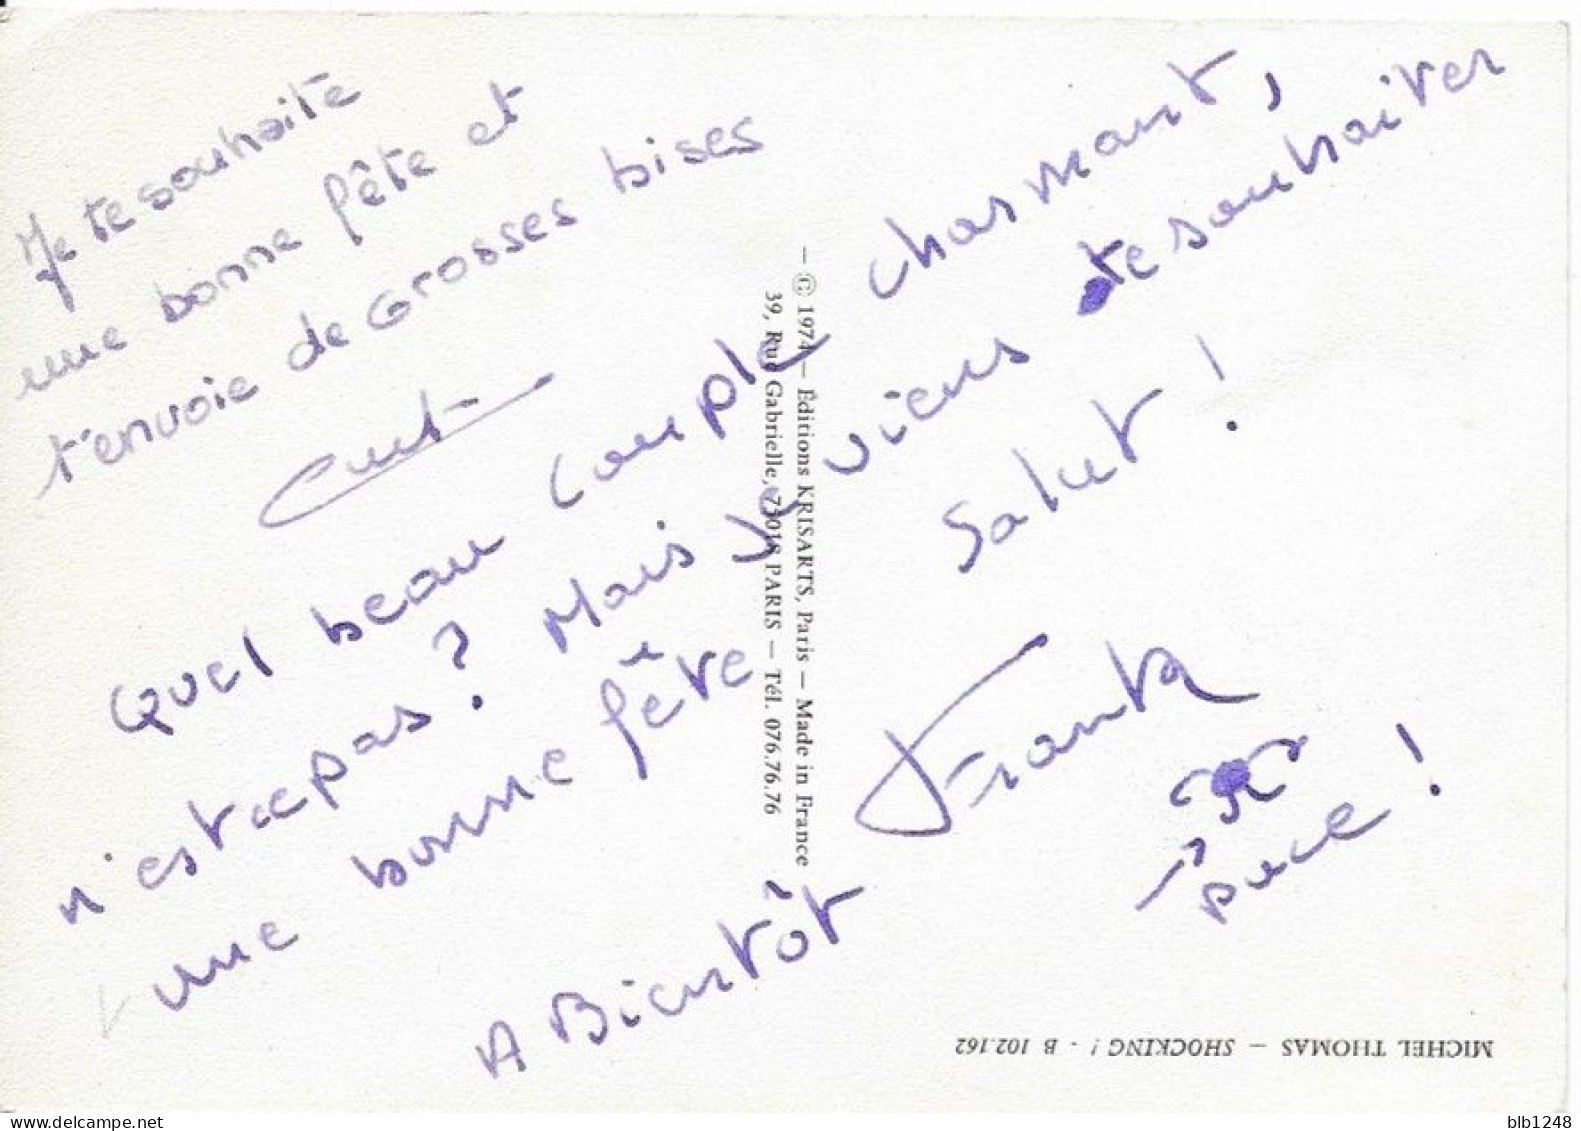 Je te souhaite
une bonne fête et
t'envoie de Grosses bises
Quel beau couple charmant,
n'est ce pas? Mais je viens te souhaiter
une bonne fête Salut !
A Bientôt Franck
puce !
— © 1974 — Éditions KRISARTS, Paris — Made in France
39, Rue Gabrielle, 75018 PARIS — Tél. 076.76.76
MICHEL THOMAS — SHOCKING ! - B 102.162
blb1248